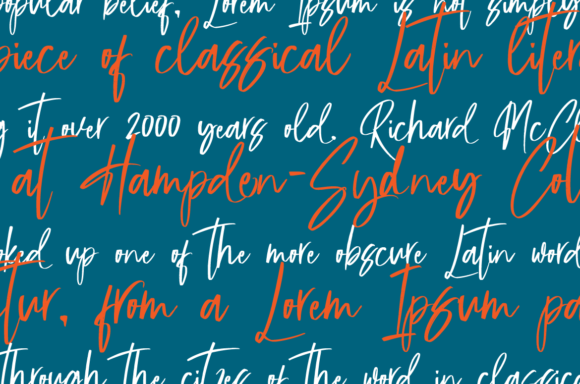 popular belief, Lorem Ipsum is not simply
piece of classical Latin liter
g it over 2000 years old. Richard McCl
at Hampden-Sydney Col
oked up one of the more obscure Latin word
tur, from a Lorem Ipsum pa
through the cites of the word in classica